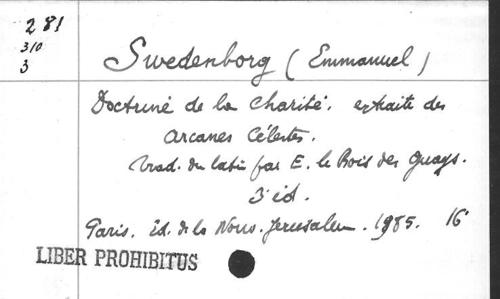 281
310
3
Swedenborg (Emmanuel)
Doctrine de la Charité. extraite des
Arcanes Célestes.
trad. du latin par E. le Bois des Guays.
3e éd.
Paris. éd. de la Nouv. Jerusalem. 1885. 16°
LIBER PROHIBITUS